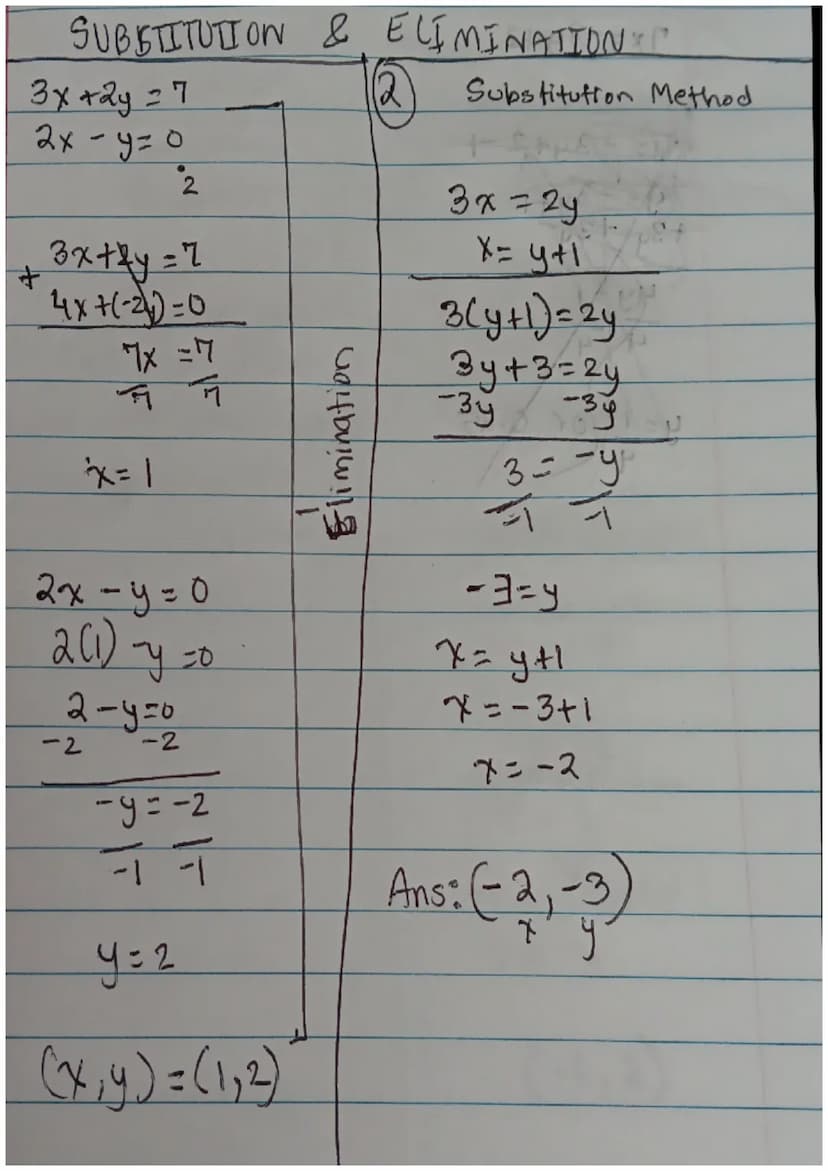 SUBSTITUTION & ELIMINATION
3x + 2y = 7
2x - y = 0
·2
3x + 2y = 7
+ 4x + (-2y) = 0
7x = 7
7 7
x = 1
2x - y = 0
2(1) - y = 0
2 - y = 0
-2 -2
-y = -2
-1 -1
y = 2
(x, y) = (1, 2)
Elimination
2 Substitution Method
3x = 2y
x = y + 1
3(y+1) = 2y
3y + 3 = 2y
-3y -3y
3 = -y
-1 -1
-3 = y
x = y + 1
x = -3 + 1
x = -2
Ans: (-2, -3)
x y